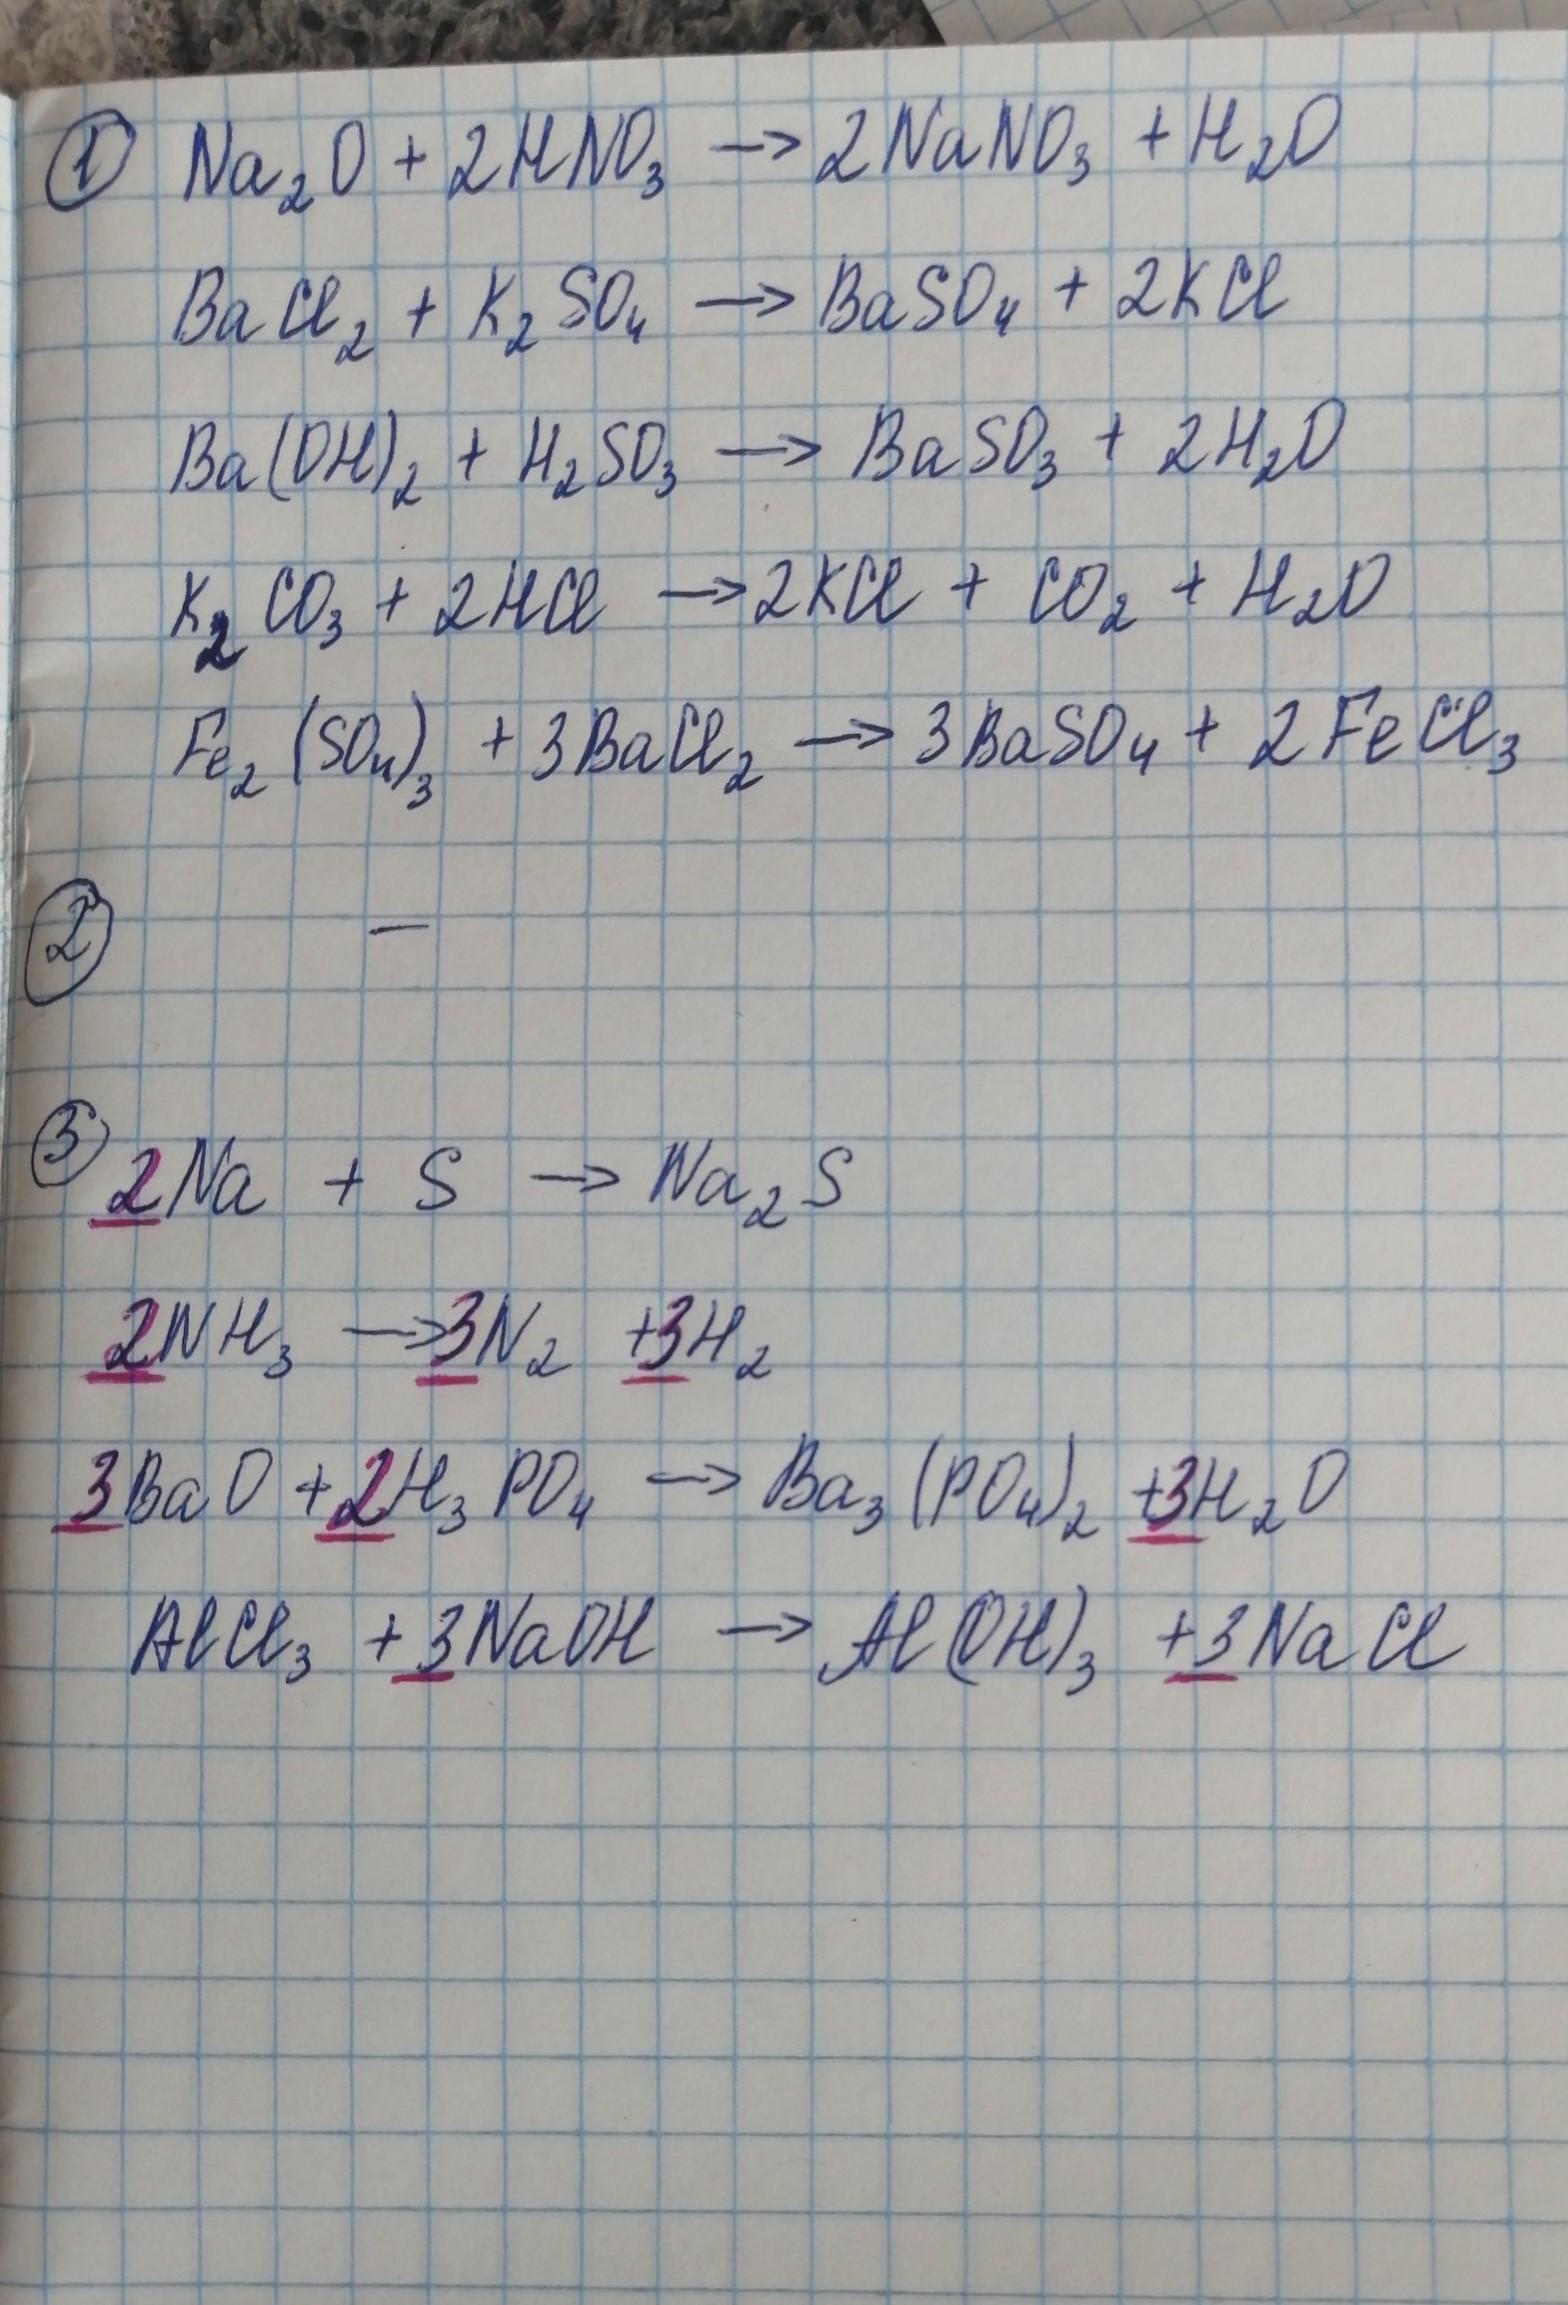 ① Na₂O + 2HNO₃ → 2NaNO₃ + H₂O
BaCl₂ + K₂SO₄ → BaSO₄ + 2KCl
Ba(OH)₂ + H₂SO₃ → BaSO₃ + 2H₂O
K₂CO₃ + 2HCl → 2KCl + CO₂ + H₂O
Fe₂(SO₄)₃ + 3BaCl₂ → 3BaSO₄ + 2FeCl₃
② —
③ 2Na + S → Na₂S
2NH₃ → 3N₂ + 3H₂
3BaO + 2H₃PO₄ → Ba₃(PO₄)₂ + 3H₂O
AlCl₃ + 3NaOH → Al(OH)₃ + 3NaCl